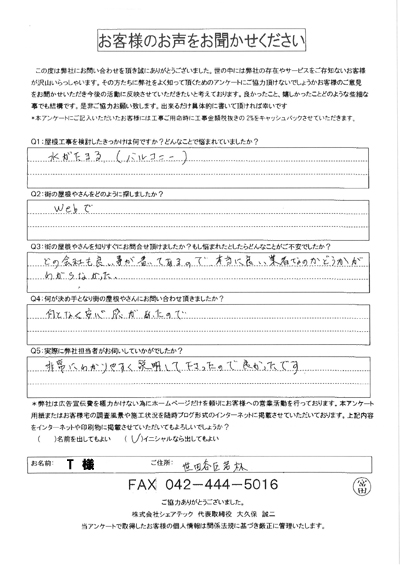 お客様のお声をお聞かせください
この度は弊社にお問い合わせを頂き誠にありがとうございました。世の中には弊社の存在やサービスをご存知ないお客様
が沢山いらっしゃいます。その方たちに弊社をよく知って頂くためのアンケートにご協力頂けないでしょうかお客様のご意見
をお聞かせいただき今後の活動に反映させていただきたいと考えております。良かったこと、嬉しかったことどのような些細な
事でも結構です。是非ご協力お願い致します。出来るだけ具体的に書いて頂ければ幸いです
*本アンケートにご記入いただいたお客様には工事ご用命時に工事金額税抜きの2%をキャッシュバックさせていただきます。
Q1:屋根工事を検討したきっかけは何ですか?どんなことで悩まれていましたか?
水がたまる (バルコニー)
Q2:街の屋根やさんをどのように探しましたか?
Webで
Q3:街の屋根やさんを知りすぐにお問合せ頂けましたか?もし悩まれたとしたらどんなことがご不安でしたか?
どの会社も良い事が書いてあるので 本当に良い業者なのかどうかが
わからなかった
Q4:何が決め手となり街の屋根やさんにお問い合わせ頂きましたか?
何となく安心感があったので
Q5:実際に弊社担当者がお伺いしていかがでしたか?
非常にわかりやすく説明して下さったので良かったです
*弊社は広告宣伝費を極力かけない為にホームページだけを頼りにお客様への営業活動を行っております。本アンケート
用紙またはお客様宅の調査風景や施工状況を随時ブログ形式のインターネットに掲載させていただいております。上記内容
をインターネットや印刷物に掲載させていただいてもよろしいでしょうか?
( )名前を出してもよい (✓)イニシャルなら出してもよい
お名前: T 様 ご住所: 世田谷区若林
FAX 042-444-5016
ご協力ありがとうございました。
株式会社シェアテック 代表取締役 大久保 誠二
当アンケートで取得したお客様の個人情報は関係法規に基づき厳正に管理いたします。